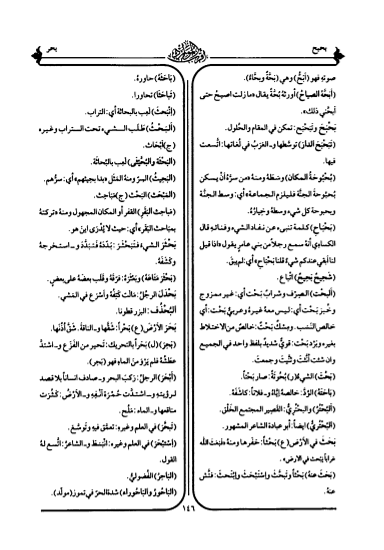 بحيح
بحر
صوته فهو (أبَحُّ) وهي (بَحَّةٌ وبحَّاءُ).
(أبَحَّهُ الصياحُ) أورثهُ بُحَّةً يقال «ما زلت أصيح حتى
أبحني ذلك».
بَحْبَحَ وتَبَحْبَحَ: تمكن في المقام والحلول.
(تَبَحْبَحَ الدارَ) توسَّطها و۔العَرَبُ في لُغاتها: اتَّسعت
فيها.
(بُحْبُوحَةُ المكانِ) وسَطهُ ومنهُ «من سرَّهُ أنْ يسكن
بُحْبُوحَةَ الجنَّةِ فليلزم الجماعة» أي: وسط الجنَّة
وبحبوحة كل شيءٍ وسطهُ وخيارُهُ.
(بَحْبَاحِ) كلمةٌ تنبيء عن نفاد الشيءِ وفنائهِ قال
الكسائي أنهُ سمع رجلاً من بني عامر يقول «إذا قيل
لنا أبقي عندكم شيءٌ قلنا بَحْبَاحِ» أي: لم يبقَ.
(شحيحٌ بحيحٌ) اتّباع.
(البحت) الصِرْف وشرابٌ بَحت أي: غير ممزوج
وخُبز بَحْت أي: ليس معهُ غيرهُ وعربيٌّ بَحت: أي
خالص النَّسب. ومِسْكٌ بَحْتٌ: خالصٌ من الاختلاط
بغيره وبَرْد بَحت: قويٌّ شديدٌ بلفظٍ واحد في الجميع
وإن شئت أنَّثت وثنَّيت وجمعت.
(بَحُتَ) الشيءُ (ر) بُحُوتَةً: صار بَحْتاً.
(باحَتَهُ) الوُدَّ: خالصهُ إيَّاهُ و۔فلاناً: كاشَفَهُ.
(البُحْتُرُ) والبُحْتُرِيُّ: القصير المجتمع الخَلْق.
(البُحْتُرِيُّ) أيضاً: أبو عبادة الشاعر المشهور.
بَحَثَ في الأرضِ (ع) بَحْثاً: حفَرها ومنهُ «فبعث اللّٰه
غراباً يبحث في الأرض».
(بَحَثَ عنهُ) بَحْثاً وتَبحَّثَ واسْتَبْحَثَ وابْتَحَثَ: فتَّش
عنهُ.
(باحَثَهُ) حاورهُ.
(تَباحَثا) تحاورا.
(ابْتَحَثَ) لعب بالبحاثة أي: التراب.
(البَحْثُ) طَلَب الشيءِ تحت التراب وغيره
(ج) أبحَاث.
(البَحْثَة والبُحَّيْثَى) لعب بالبُحاثة.
(البَحِيثُ) السرُّ ومنهُ المثل «بدا بحيثهم» أي: سرُّهم.
(المَبْحَثُ) البحْث (ج) مَبَاحِث.
(مَباحِث البَقَر) القفر أو المكان المجهول ومنهُ «تركتهُ
بمباحث البقر» أي: حيث لا يُدْرَى أين هو.
بَحْثَرَ الشيءَ فَتَبَحْثَرَ: بدَّدهُ فَتَبَدَّدَ و۔ استخرجهُ
وكَشَفَهُ.
(بَحْثَرَ مَتَاعَهُ) وبَعْثَرَهُ: فرَّقهُ وقلب بعضهُ على بعض.
بَحْدَلَ الرجلُ: مالت كتِفُهُ وأسرَعَ في المَشي.
البُحْدُقُ: البزرقطونا.
بَحَرَ الأرْضَ (ع) بَحْراً: شقَّها و۔الناقةَ: شَقَّ أُذُنَها.
(بَحِرَ) (ل) بَحَراً بالتحريك: تحير من الفزع و۔اشتدَّ
عطشهُ فلم يَرْوَ من الماءِ فهو (بَحِر).
(أبْحَرَ) الرجلُ: ركبَ البحر و۔ صادف انساناً بلا قصد
لرؤيته و۔ اشتدَّتْ حُمْرَةُ أنفه و۔الأرضُ: كَثُرت
مناقعها و۔الماءُ: ملُح.
(تَبحَّرَ) في العلم وغيره: تعمَّق فيهِ وتوسَّع.
(اسْتَبْحَرَ) في العلم وغيره: انْبَسَطَ و۔الشاعرُ: اتَّسع لهُ
القول.
(الباحِرُ) الفُضوليُّ.
(الباحُورُ والباحُوراءُ) شدة الحرّ في تموز (مولَّد).
١٤٦